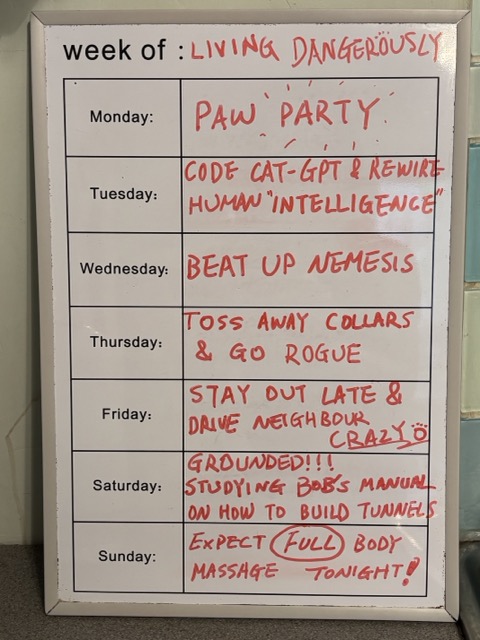 week of : LIVING DANGERÖUSLY
Monday:
PAW PARTY
Tuesday:
CODE CAT-GPT & REWIRE
HUMAN "INTELLIGENCE"
Wednesday:
BEAT UP NEMESIS
Thursday:
TOSS AWAY COLLARS
& GO ROGUE
Friday:
STAY OUT LATE &
DRIVE NEIGHBOUR
CRAZY
Saturday:
GROUNDED!!!
STUDYING BOB'S MANUAL
ON HOW TO BUILD TUNNELS
Sunday:
EXPECT FULL BODY
MASSAGE TONIGHT!